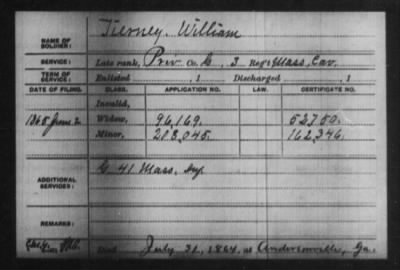 NAME OF SOLDIER: Tierney, William
SERVICE: Late rank, Priv. Co. G, 3 Reg't Mass. Cav.
TERM OF SERVICE: Enlisted , 1 Discharged , 1
DATE OF FILING. CLASS. APPLICATION NO. LAW. CERTIFICATE NO.
Invalid,
1865 June 2 Widow, 96,169. 52750.
Minor, 213,045. 162,346.
ADDITIONAL SERVICES: G 41 Mass. Inf.
REMARKS:
Died July 31, 1864, at Andersonville, Ga.